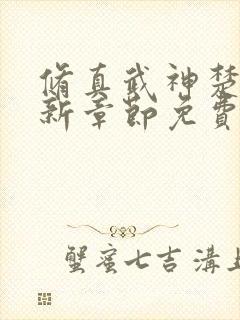 脩真武神楚
新章節免費
蟹蜜七吉溝上